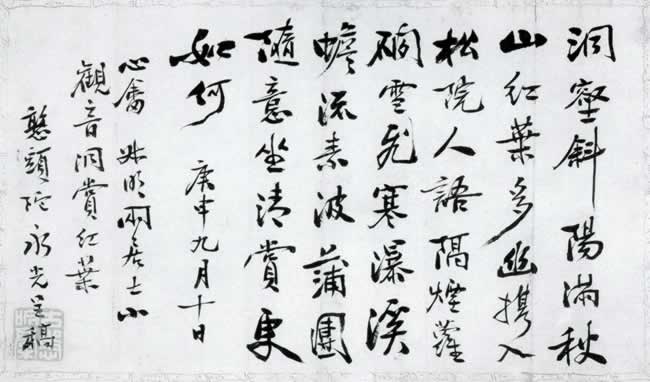 洞壑斜陽滿秋
山紅葉多幽携入
松院人語隔煙蘿
磵雪飛寒瀑溪
蟾流素波蒲團
隨意坐清賞更
如何 庚申九月十日
心畬 叔明兩居士
觀音洞賞紅葉
憨頭陀永光呈稿